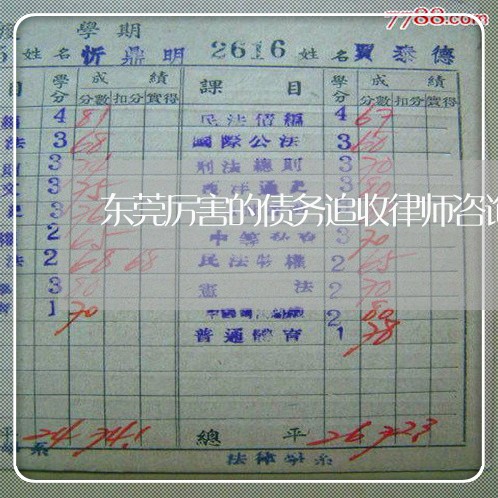 7788.com
學期
5 姓名 忻鼎明 2616 姓名 賈泰德
目 學分 成績 課目 學分 成績
分數 扣分 實得 分數 扣分 實得
4 81 民法債編 4 67
法 3 68 國際公法 3 60
3 刑法總則 3 70
3 75 西洋通史 3 80
東莞厉害的债务追收律师咨询
2 65 3 70
法 2 68 68 民法物權 2 65
3 80 憲法 2 70
1 70 2 80
普通體育 1 78
平 24 74.1 總平 26 72.3
系 法律學系